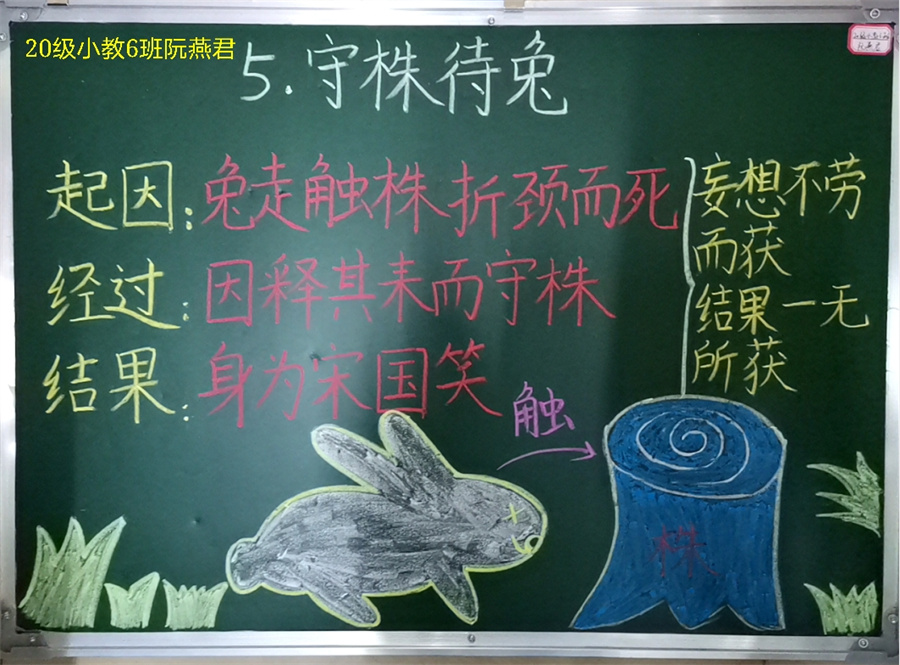 20级小教6班阮燕君
5.守株待兔
起因:兔走触株 折颈而死
经过:因释其耒而守株
结果:身为宋国笑
妄想不劳
而获
结果一无
所获
触
株